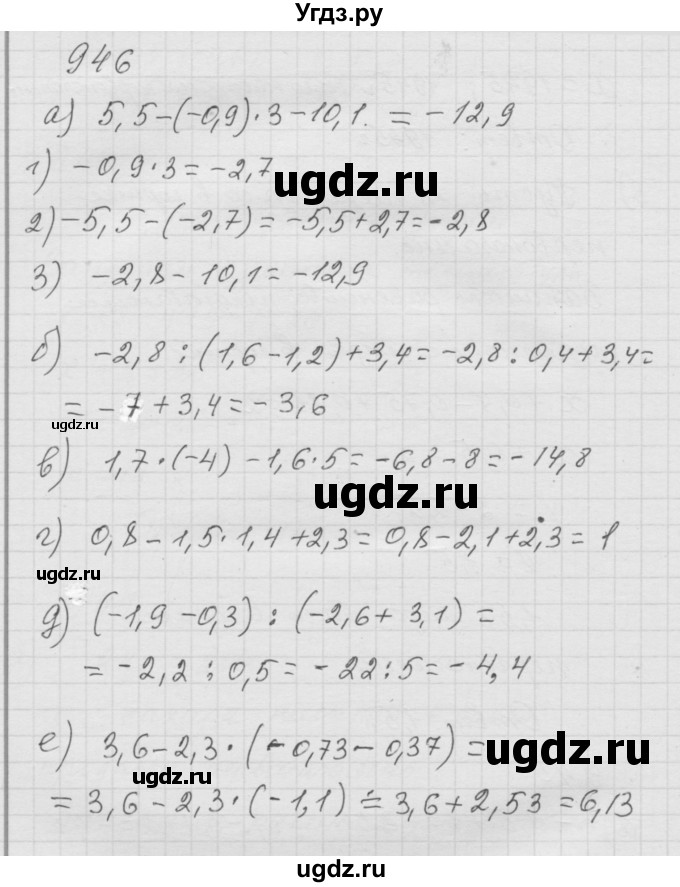 Угдз.ру
946
а) 5,5-(-0,9)·3-10,1. = -12,9
1) -0,9·3=-2,7
ugdz.ru
2) -5,5-(-2,7)=-5,5+2,7=-2,8
3) -2,8-10,1=-12,9
б) -2,8:(1,6-1,2)+3,4=-2,8:0,4+3,4=
=-7+3,4=-3,6
ugdz.ru
в) 1,7·(-4)-1,6·5=-6,8-8=-14,8
ugdz.ru
г) 0,8-1,5·1,4+2,3=0,8-2,1+2,3=1
ugdz.ru
д) (-1,9-0,3):(-2,6+3,1)=
=-2,2:0,5=-22:5=-4,4
е) 3,6-2,3·(-0,73-0,37)=
ugdz.ru
ugdz.ru
=3,6-2,3·(-1,1)=3,6+2,53=6,13
ugdz.ru